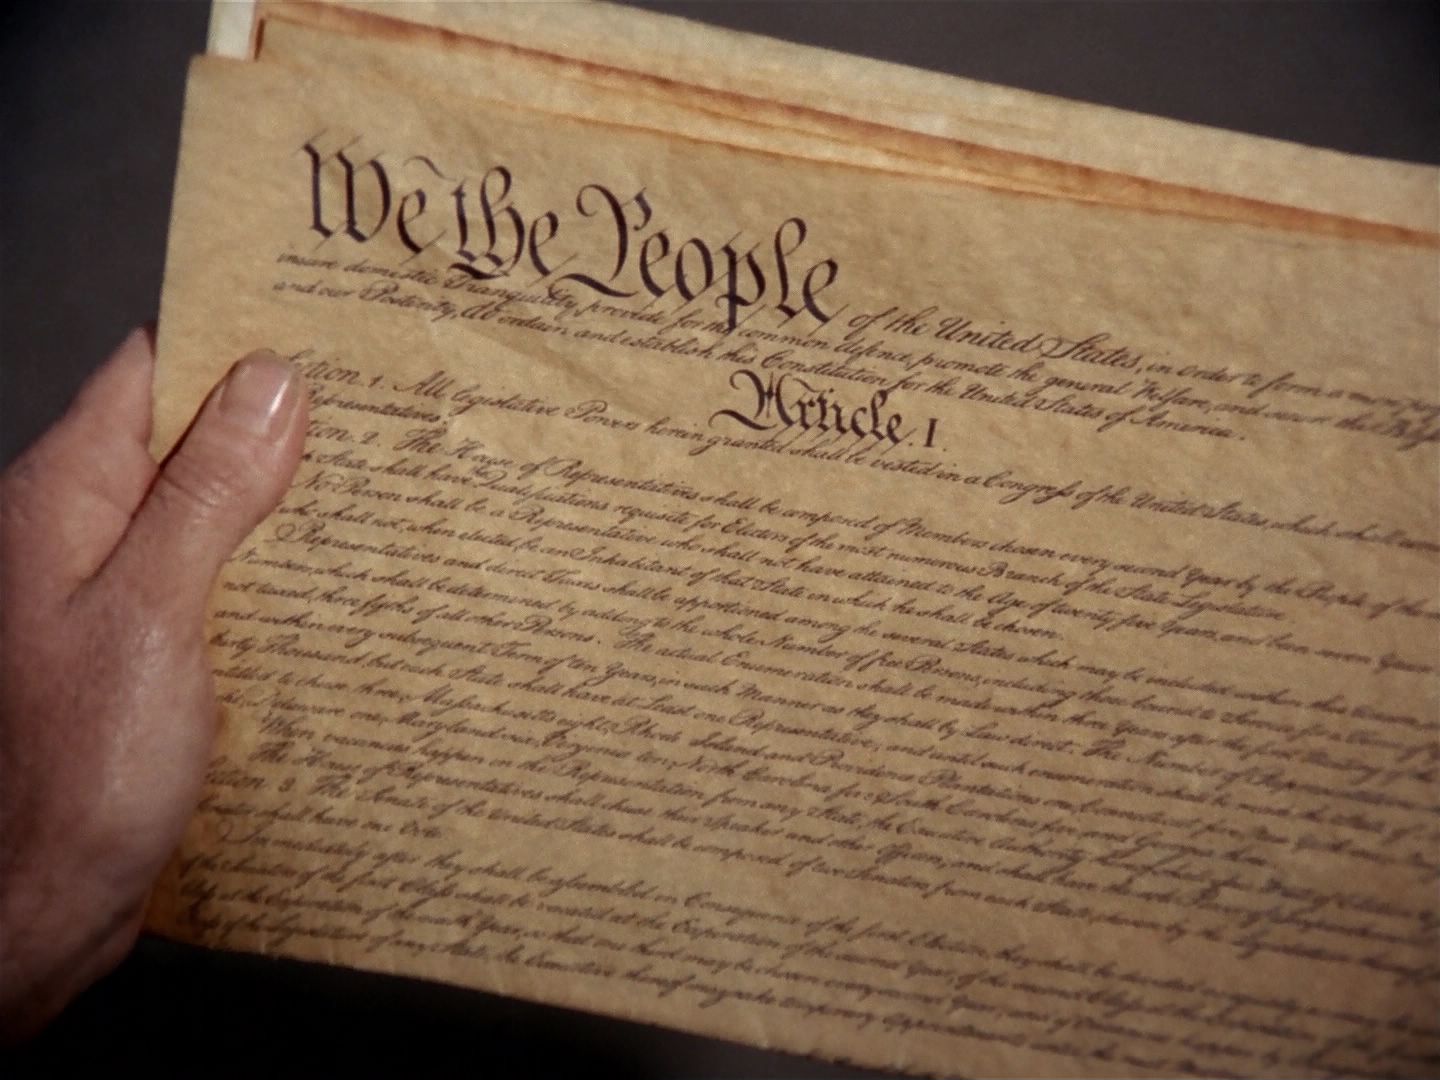 We the People of the United States, in order to form a more
insure domestic Tranquility, provide for the common defence, promote the general Welfare, and secure the
and our Posterity, do ordain and establish this Constitution for the United States of America.
Article. I.
Section. 1. All legislative Powers herein granted shall be vested in a Congress of the United States, which shall
Representatives.
tion. 2. The House of Representatives shall be composed of Members chosen every second Year by the People of the
State shall have the Qualifications requisite for Electors of the most numerous Branch of the State Legislature.
No Person shall be a Representative who shall not have attained to the Age of twenty five Years, and been seven Years
who shall not, when elected, be an Inhabitant of that State in which he shall be chosen.
Representatives and direct Taxes shall be apportioned among the several States which may be included within this
Numbers, which shall be determined by adding to the whole Number of free Persons, including those bound to Service for a Term of
not taxed, three fifths of all other Persons. The actual Enumeration shall be made within three Years after the first Meeting of the
and within every subsequent Term of ten Years, in such Manner as they shall by Law direct. The Number of Representatives
thirty Thousand, but each State shall have at Least one Representative; and until such enumeration shall be made, the State of
entitled to chuse three, Massachusetts eight, Rhode Island and Providence Plantations one, Connecticut five,
Delaware one, Maryland six, Virginia ten, North Carolina five, South Carolina five, and Georgia three.
When vacancies happen in the Representation from any State, the Executive Authority
The House of Representatives shall chuse their Speaker and other Officers; and shall have the sole Power of Impeachment.
ction. 3. The Senate of the United States shall be composed of two Senators from each State, chosen by the Legislature
shall have one Vote.
Immediately after they shall be assembled in Consequence of the first Election, they shall be divided
of the Senators of the first Class shall be vacated at the Expiration of the second Year, of the second Class at the Expiration
at the Expiration of the sixth Year, so that one third may be chosen every second Year;
of the Legislature of any State, the Executive thereof may make temporary Appointments